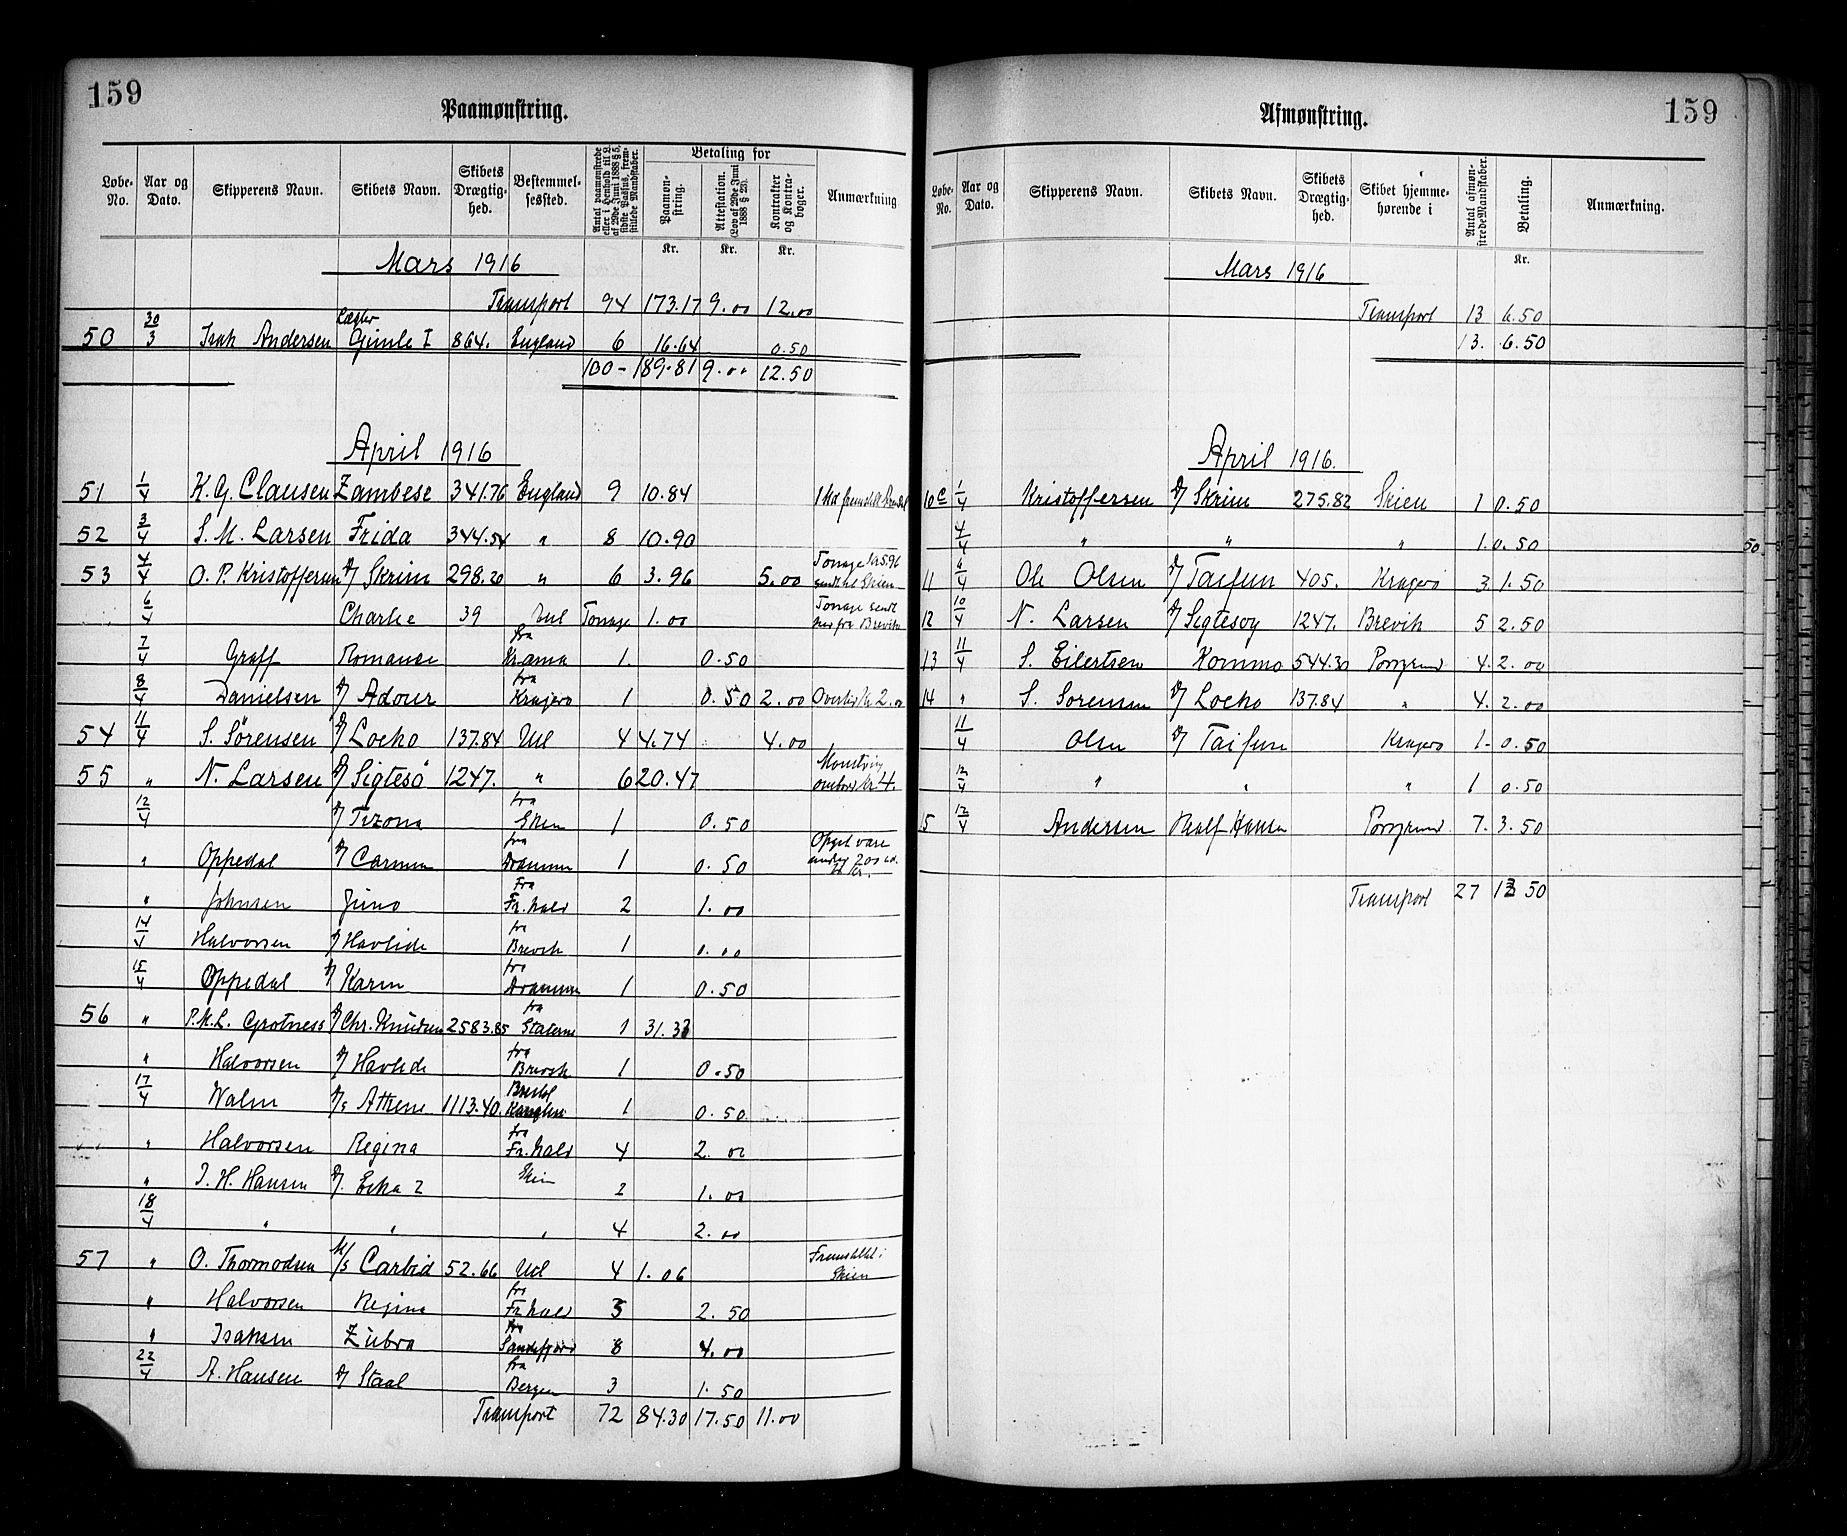 159
Paamønstring.
Løbe-No. Aar og Dato. Skipperens Navn. Skibets Navn. Skibets Drægtighed. Bestemmelsessted. Antal paamønstrede eller i Henhold til L. af 29de Juni 1888 § 5, sidste Passus, fremstillede Mandskaber. Betaling for Paamønstring. Attestation. (Lov af 29de Juni 1888 § 25). Kontrakter og Kontrabøger. Anmærkning
Kr. Kr. Kr.
Mars 1916
Transport 94 173.17 9.00 12.00
50 30/3 Isak Andersen Lægter Gimle I 864. England 6 16.64 0.50
100 - 189.81 9.00 12.50
April 1916
51 1/4 K. G. Clausen Zambese 341.76 England 9 10.84
52 3/4 S. M. Larsen Frida 344.54 " 8 10.90
53 4/4 O. P. Kristoffersen D/ Skrim 298.20 " 6 3.96 5.00 Tonage kr 5.96 sendt til Skien
6/4 Charlie 39 Utl Tonage 1.00 Tonage sendt her fra Brevik
7/4 Graff Romance fra Kramø 1. 0.50
8/4 Danielsen D/ Adour fra Kragerø 1 0.50 2.00 Overtid kr 2.00
54 11/4 S. Sörensen D/ Locko 137.84 Utl 4 4.74 4.00
55 " N. Larsen D/ Sigtesö 1247. " 6 20.47 Mønstring ombord kr 4.
12/4 D/ Tizona fra Skien 1 0.50
" Oppedal D/ Carmen fra Drammen 1 0.50 Opgit være
" Johnsen Juno fra Fr.hald 2 1.00
14/4 Halvorsen D/ Havlide fra Brevik 1 0.00
15/4 Oppedal D/ Karin fra Drammen 1 0.50
56 " P.M.L. Grotness D/ Chr. Knudsen 2583.85 fra Staterne 1 31.33
" Halvorsen D/ Havlide fra Brevik 1 0.50
17/4 Walm D/s Athene 1113.40 1 0.50
" Halvorsen Regina fra Fr.hald 4 2.00
" I. H. Hansen D/. Erka 2 Skien 2 1.00
18/4 " " " 4 2.00
57 " O. Thormodsen M/s Carbid 52.66 Utl 4 1.06 Fremstillet i Skien
" Halvorsen Regina fra Fr.hald 5 2.50
" Isaksen Zubra fra Sandefjord 8 4.00
22/4 A. Hansen D/ Staal fra Bergen 3 1.50
Transport 72 84.30 17.50 11.00
159
Afmønstring.
Løbe-No. Aar og Dato. Skipperens Navn. Skibets Navn. Skibets Drægtighed. Skibet hjemmehørende i Antal afmønstrede Mandskaber. Betaling. Anmærkning.
Kr.
Mars 1916
Transport 13 6.50
13. 6.50
April 1916.
10c 1/4 Kristoffersen D/ Skrim 275.82 Skien 1 0.50
4/4 " " " 1. 0.50
11 6/4 Ole Olsen D/ Taifun 405. Kragerø 3 1.50
12 10/4 N. Larsen D/ Sigtesøy 1247. Brevik 5 2.50
13 11/4 S. Eilertsen Kommo 544.30 Porsgrund 4. 2.00
14 " S. Sorensen D/ Locko 137.84 " 4. 2.00
11/4 Olsen D/ Taifun Kragerø 1- 0.50
12/4 " " " 1 0.50
15 12/4 Andersen Half Hansen Porsgrund 7. 3.50
Transport 27 13 50
50